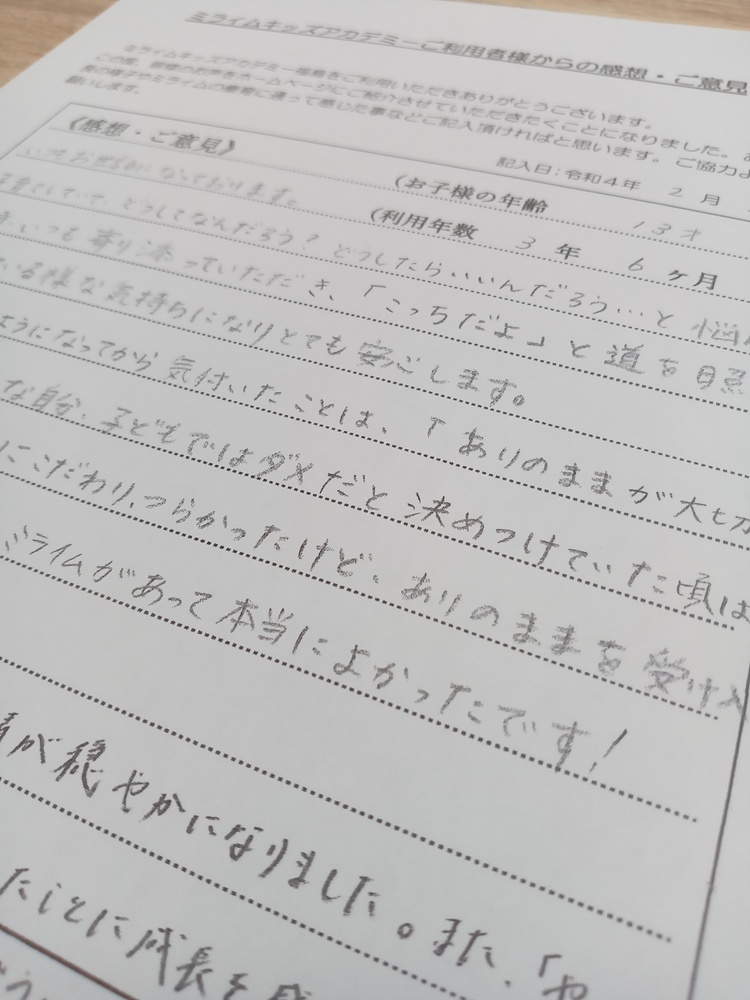 ミライムキッズアカデミーご利用者様からの感想・ご意見
ミライムキッズアカデミー
をご利用いただきありがとうございます。
この度、皆様のお声をホームページにご紹介させていただきたくことになりました。
の様子やミライムの療育に通って感じた事などご記入頂ければと思います。ご協力よ
願いします。
記入日:令和4年 2月
《感想・ご意見》
(お子様の年齢 13才
いつもお世話になっております。
(利用年数 3年 6ヶ月
子育てしていて、どうしてなんだろう?どうしたらいいんだろう…と悩
いつも寄り添っていただき、「こっちだよ」と道を照
いる様な気持ちになりとても安心します。
ようになってから気付いたことは、「ありのままが大切
な自分、子どもではダメだと決めつけていた頃は
にこだわり、つらかったけど、ありのままを受け入
ミライムがあって本当によかったです!
が穏やかになりました。また、「や
たことに成長を感